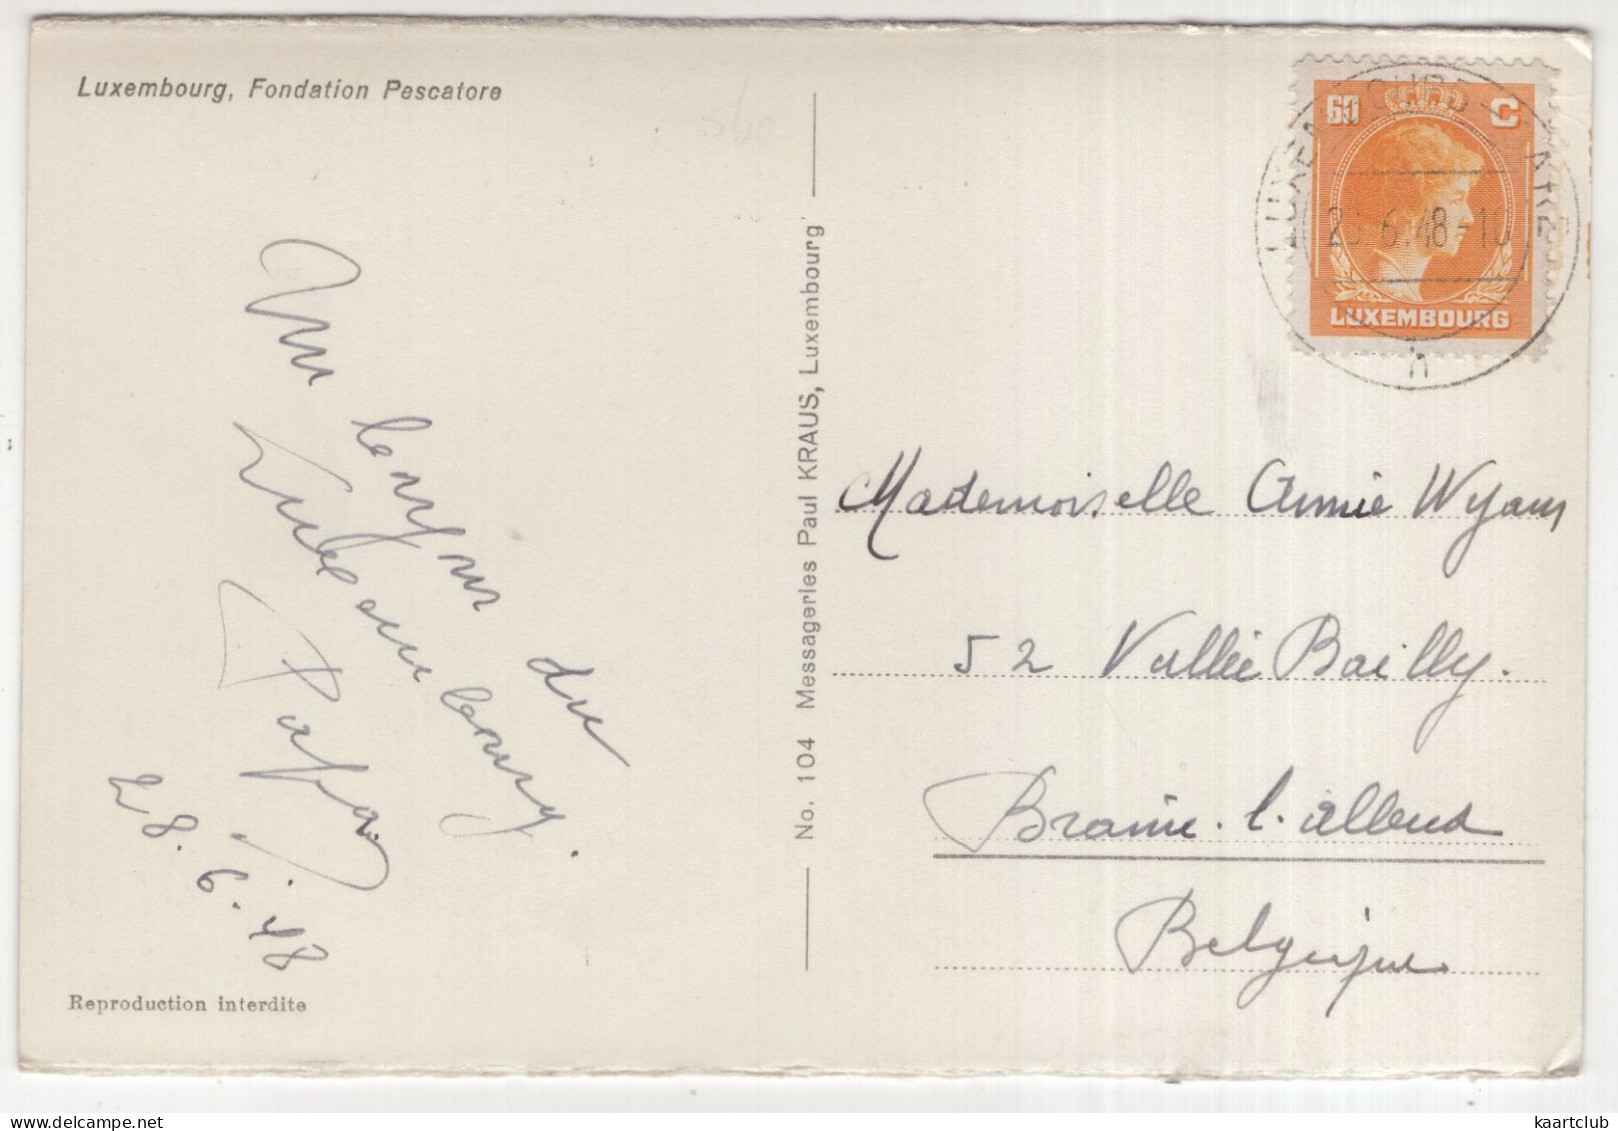 Luxembourg, Fondation Pescatore
Un bonjour du
Luxembourg.
Papa.
28.6.48
Reproduction interdite
No. 104 Messageries Paul KRAUS, Luxembourg
60 C
LUXEMBOURG
LUXEMBOURG-CENTRE
6.48-10
Mademoiselle Annie Wyam
52 Vallée Bailly.
Braine-l'alleud
Belgique
kaartclub